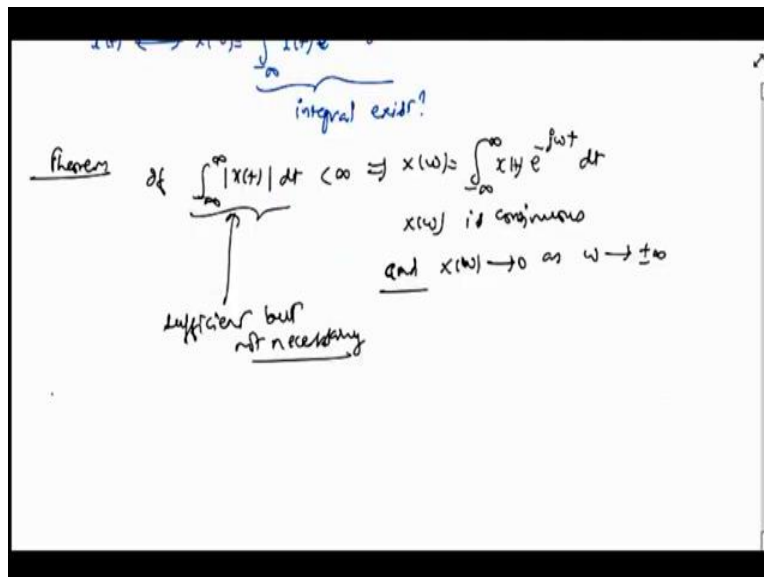 x(t) ⟷ X(ω) = ∫_{-∞} x(t) e
integral exist?
Theorem If ∫_{-∞}^{∞} |x(t)| dt < ∞ ⇒ X(ω) = ∫_{-∞}^{∞} x(t) e^{-jωt} dt
X(ω) is continuous
and X(ω) → 0 as ω → ±∞
sufficient but
not necessary